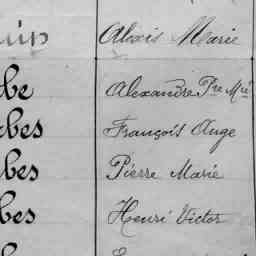 Alexis Marie
be Alexandre Pre Mie
bes François Ange
bes Pierre Marie
bes Henri Victor